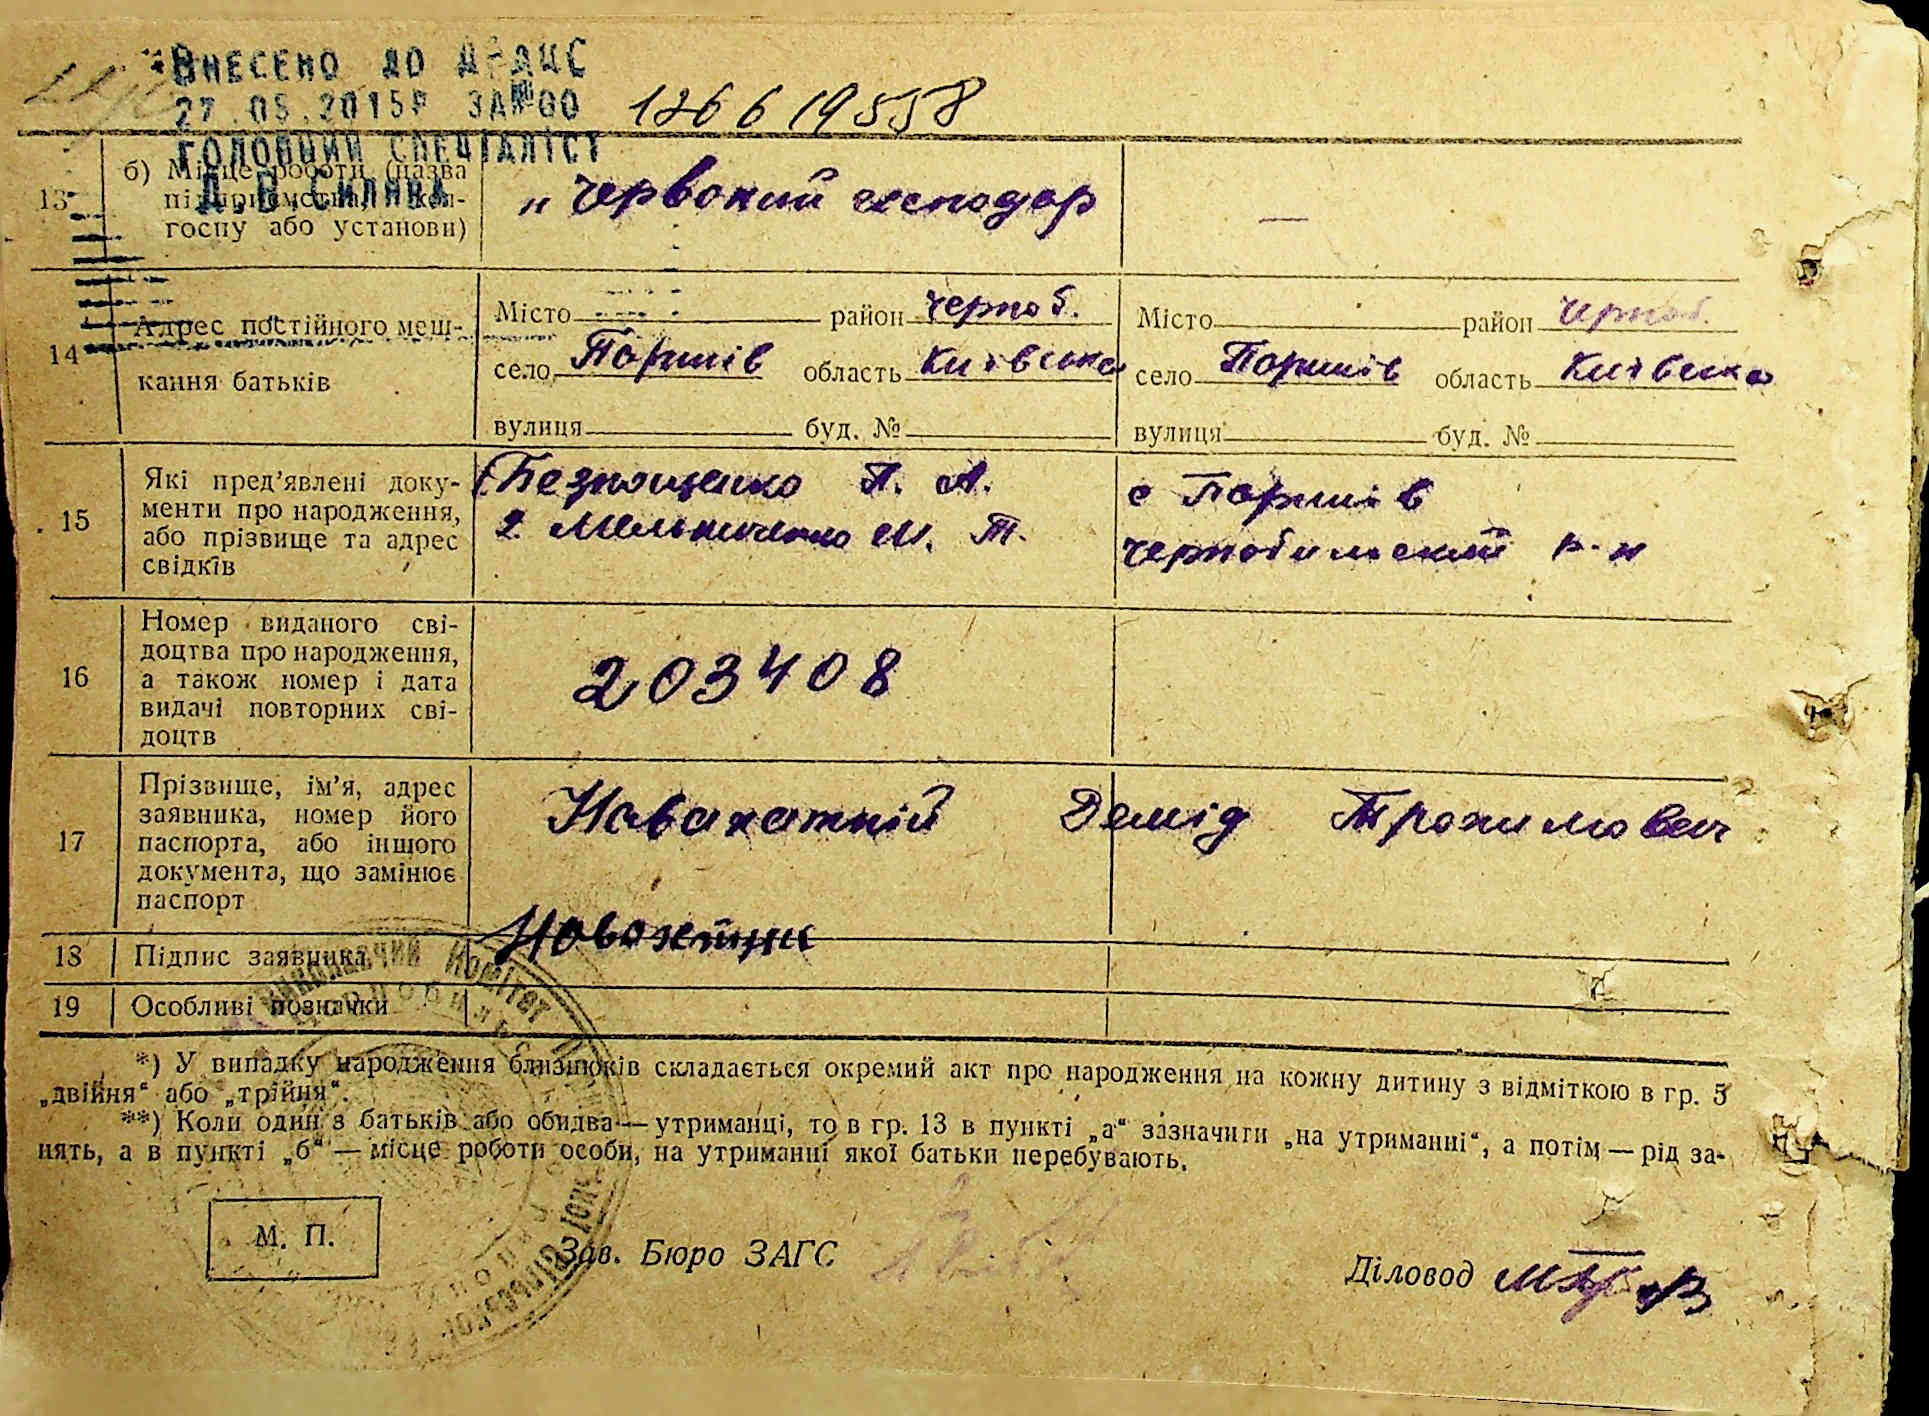 ВНЕСЕНО ДО ДРАЦС
27.05.2015Р ЗА№00 126619558
ГОЛОВНИЙ СПЕЦІАЛІСТ
13 б) Місце роботи (назва підприємства, кол-
госпу або установи)
„Червоний господар —
14 Адрес постійного меш-
кання батьків
Місто район Чорноб.
село Поршів область Київська
вулиця буд. №
Місто район Чорноб.
село Поршів область Київська
вулиця буд. №
15 Які пред’явлені доку-
менти про народження,
або прізвище та адрес
свідків
П. А.
2. Мельниченко М. Т.
с Поршів
Чорнобильский р-н
16 Номер виданого сві-
доцтва про народження,
а також номер і дата
видачі повторних сві-
доцтв
203408
17 Прізвище, ім’я, адрес
заявника, номер його
паспорта, або іншого
документа, що замінює
паспорт
Новахатній Демід Трохимович
18 Підпис заявника
19 Особливі позначки
*) У випадку народження близнюків складається окремий акт про народження на кожну дитину з відміткою в гр. 5
„двійня“ або „трійня“.
**) Коли один з батьків або обидва—утриманці, то в гр. 13 в пункті „а“ зазначити „на утриманні“, а потім—рід за-
нять, а в пункті „б“—місце роботи особи, на утриманні якої батьки перебувають.
М. П.
Зав. Бюро ЗАГС
Діловод